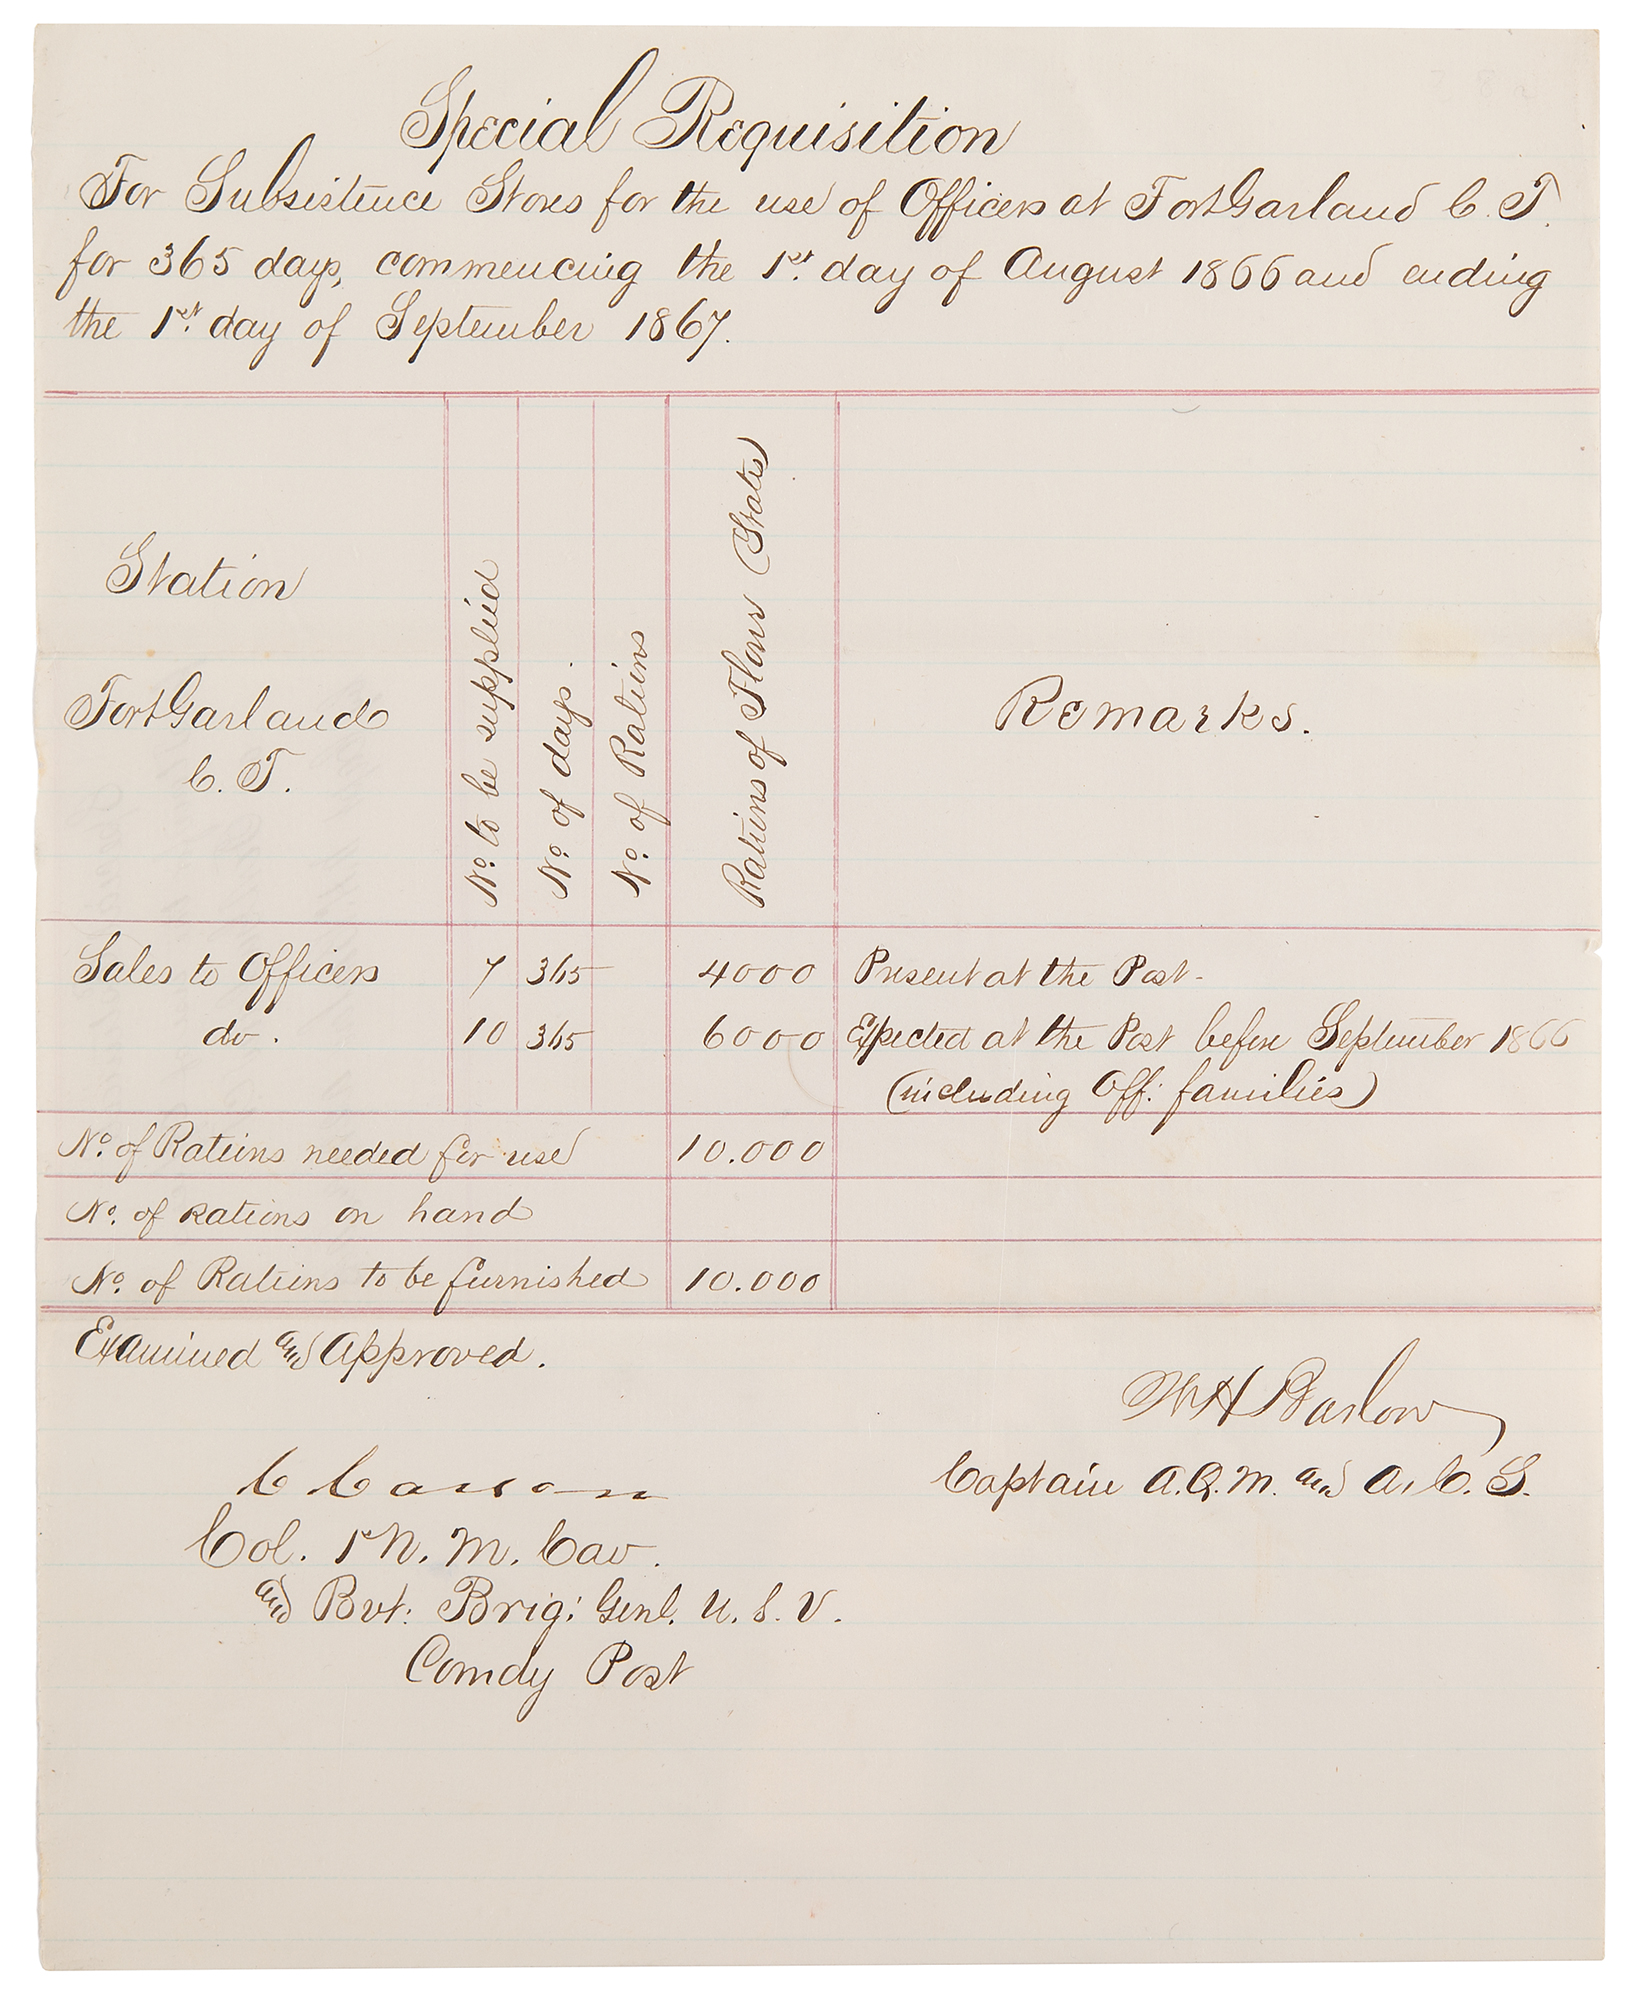 Special Requisition
For Subsistence Stores for the use of Officers at Fort Garland C. T.
for 365 days, commencing the 1st. day of August 1866 and ending
the 1st. day of September 1867.
Station
Fort Garland
C. T.
No. to be supplied
No. of days.
No. of Rations
Rations of Flour (States)
Remarks.
Sales to Officers 7 365 4000 Present at the Post-
do. 10 365 6000 Expected at the Post before September 1866
(including Off: families)
No. of Rations needed for use 10.000
No. of Rations on hand
No. of Rations to be furnished 10.000
Examined and Approved.
W H Barlow
Captain A.Q.M. and A.C.S.
C Carson
Col. 1st N. M. Cav.
and Bvt: Brig: Genl. U. S. V.
Comdg Post